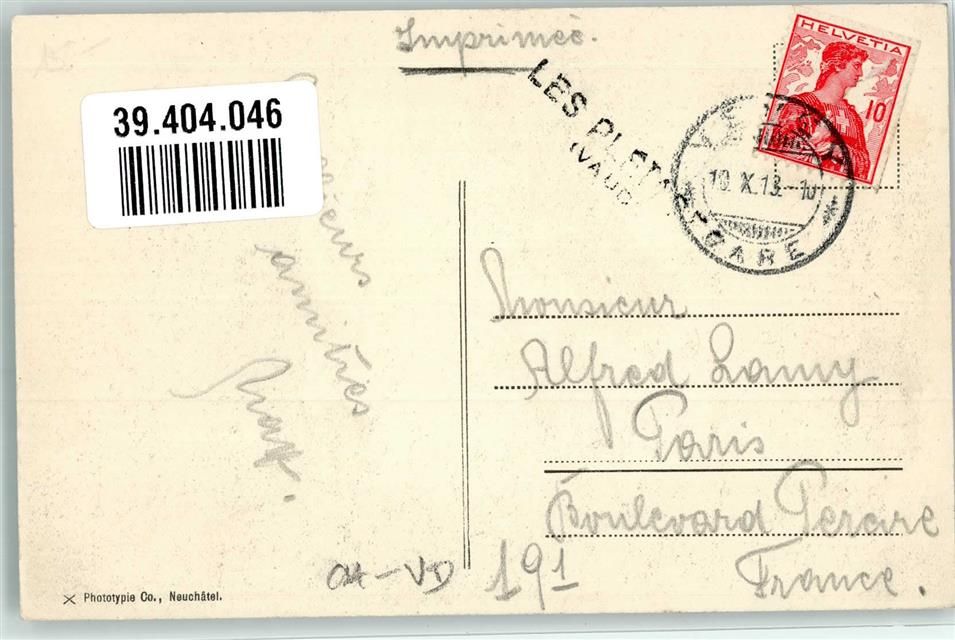 Imprimée.
HELVETIA
10
LES PLÉIADES
(VAUD)
VEVEY
10.X.13.-10
GARE
39.404.046
amitiés
Monsieur
Alfred Lamy
Paris
Boulevard Pereire
France.
191
CH-VD
Phototypie Co., Neuchâtel.